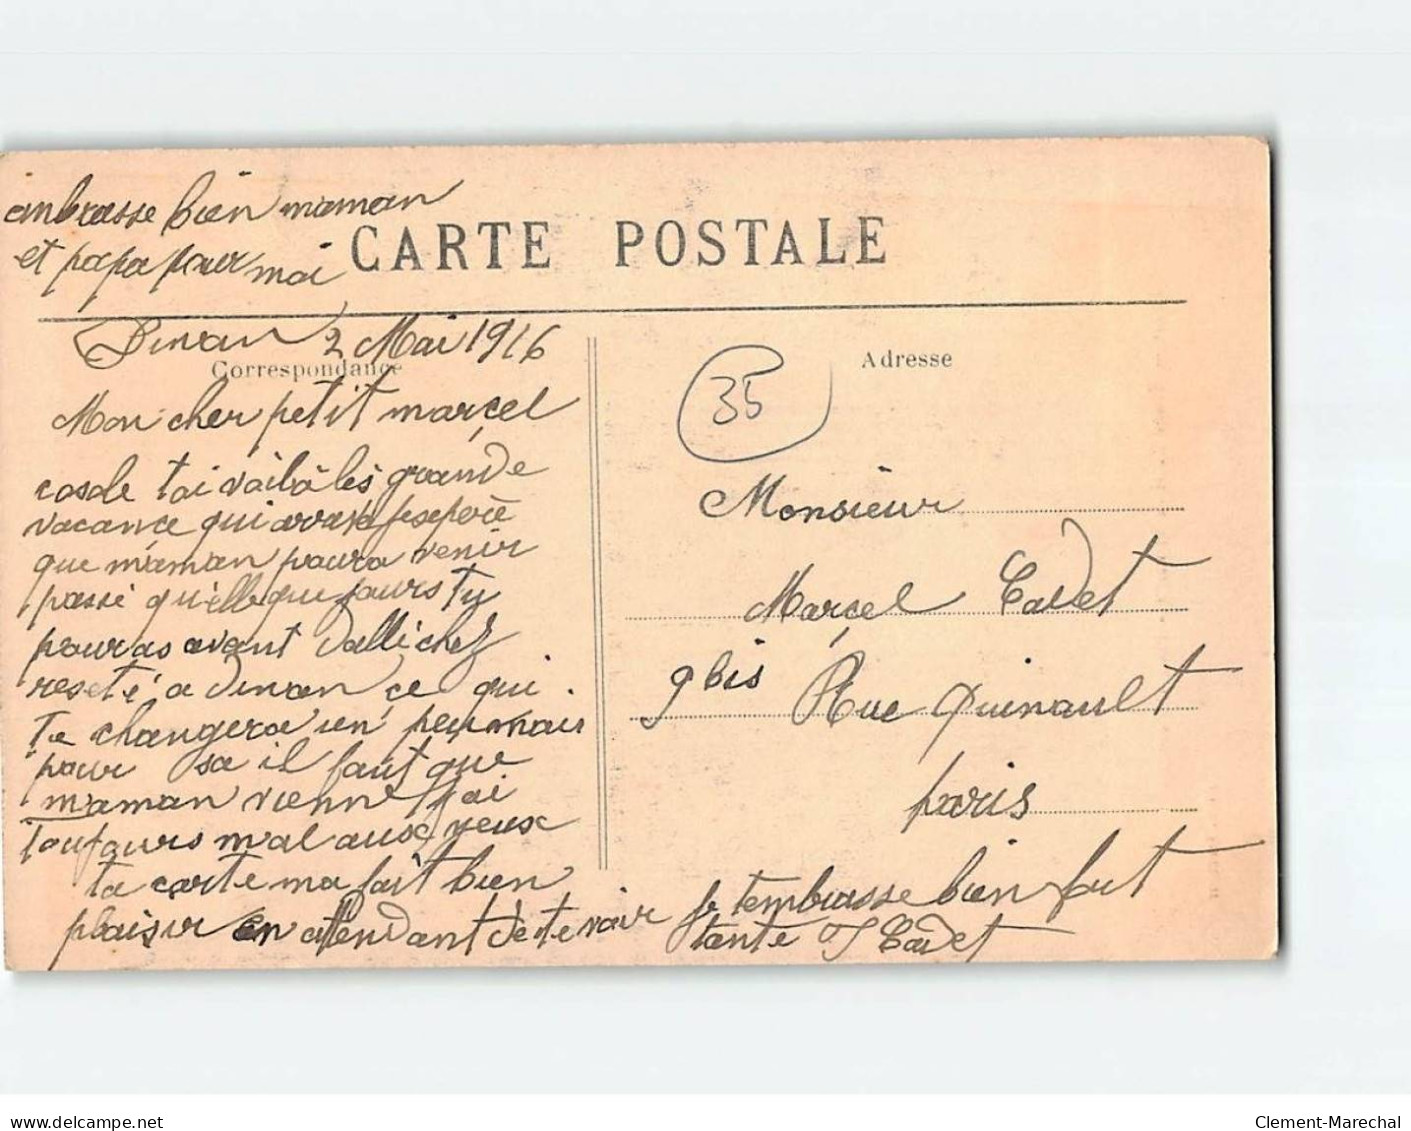 embrasse bien maman
et papa pour moi
CARTE POSTALE
Dinan 2 Mai 1916
Correspondance
Mon cher petit marcel
toi voila les grande
vacance qui
que maman poura venir
passé quelleque jours tu
pouras avant dalli chez
reste a Dinan ce qui
te changera un peu mais
pour sa il faut que
maman vienne jai
toujours mal aux yeux
ta carte ma fait bien
plaisir en attendant de te voir je tembrasse bien fort
tante Cadet
Adresse
35
Monsieur
Marcel Cadet
9 bis Rue Quinault
paris
www.delcampe.net
Clement-Marechal